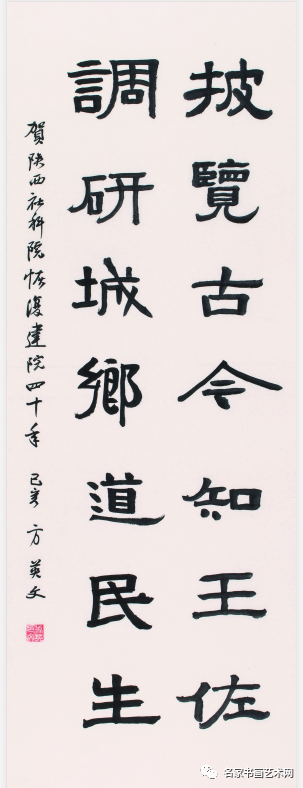 披覽古今知王佐
調研城鄉道民生
賀陕西社科院恢復建院四十年 己亥 方英文
名家书画艺术网